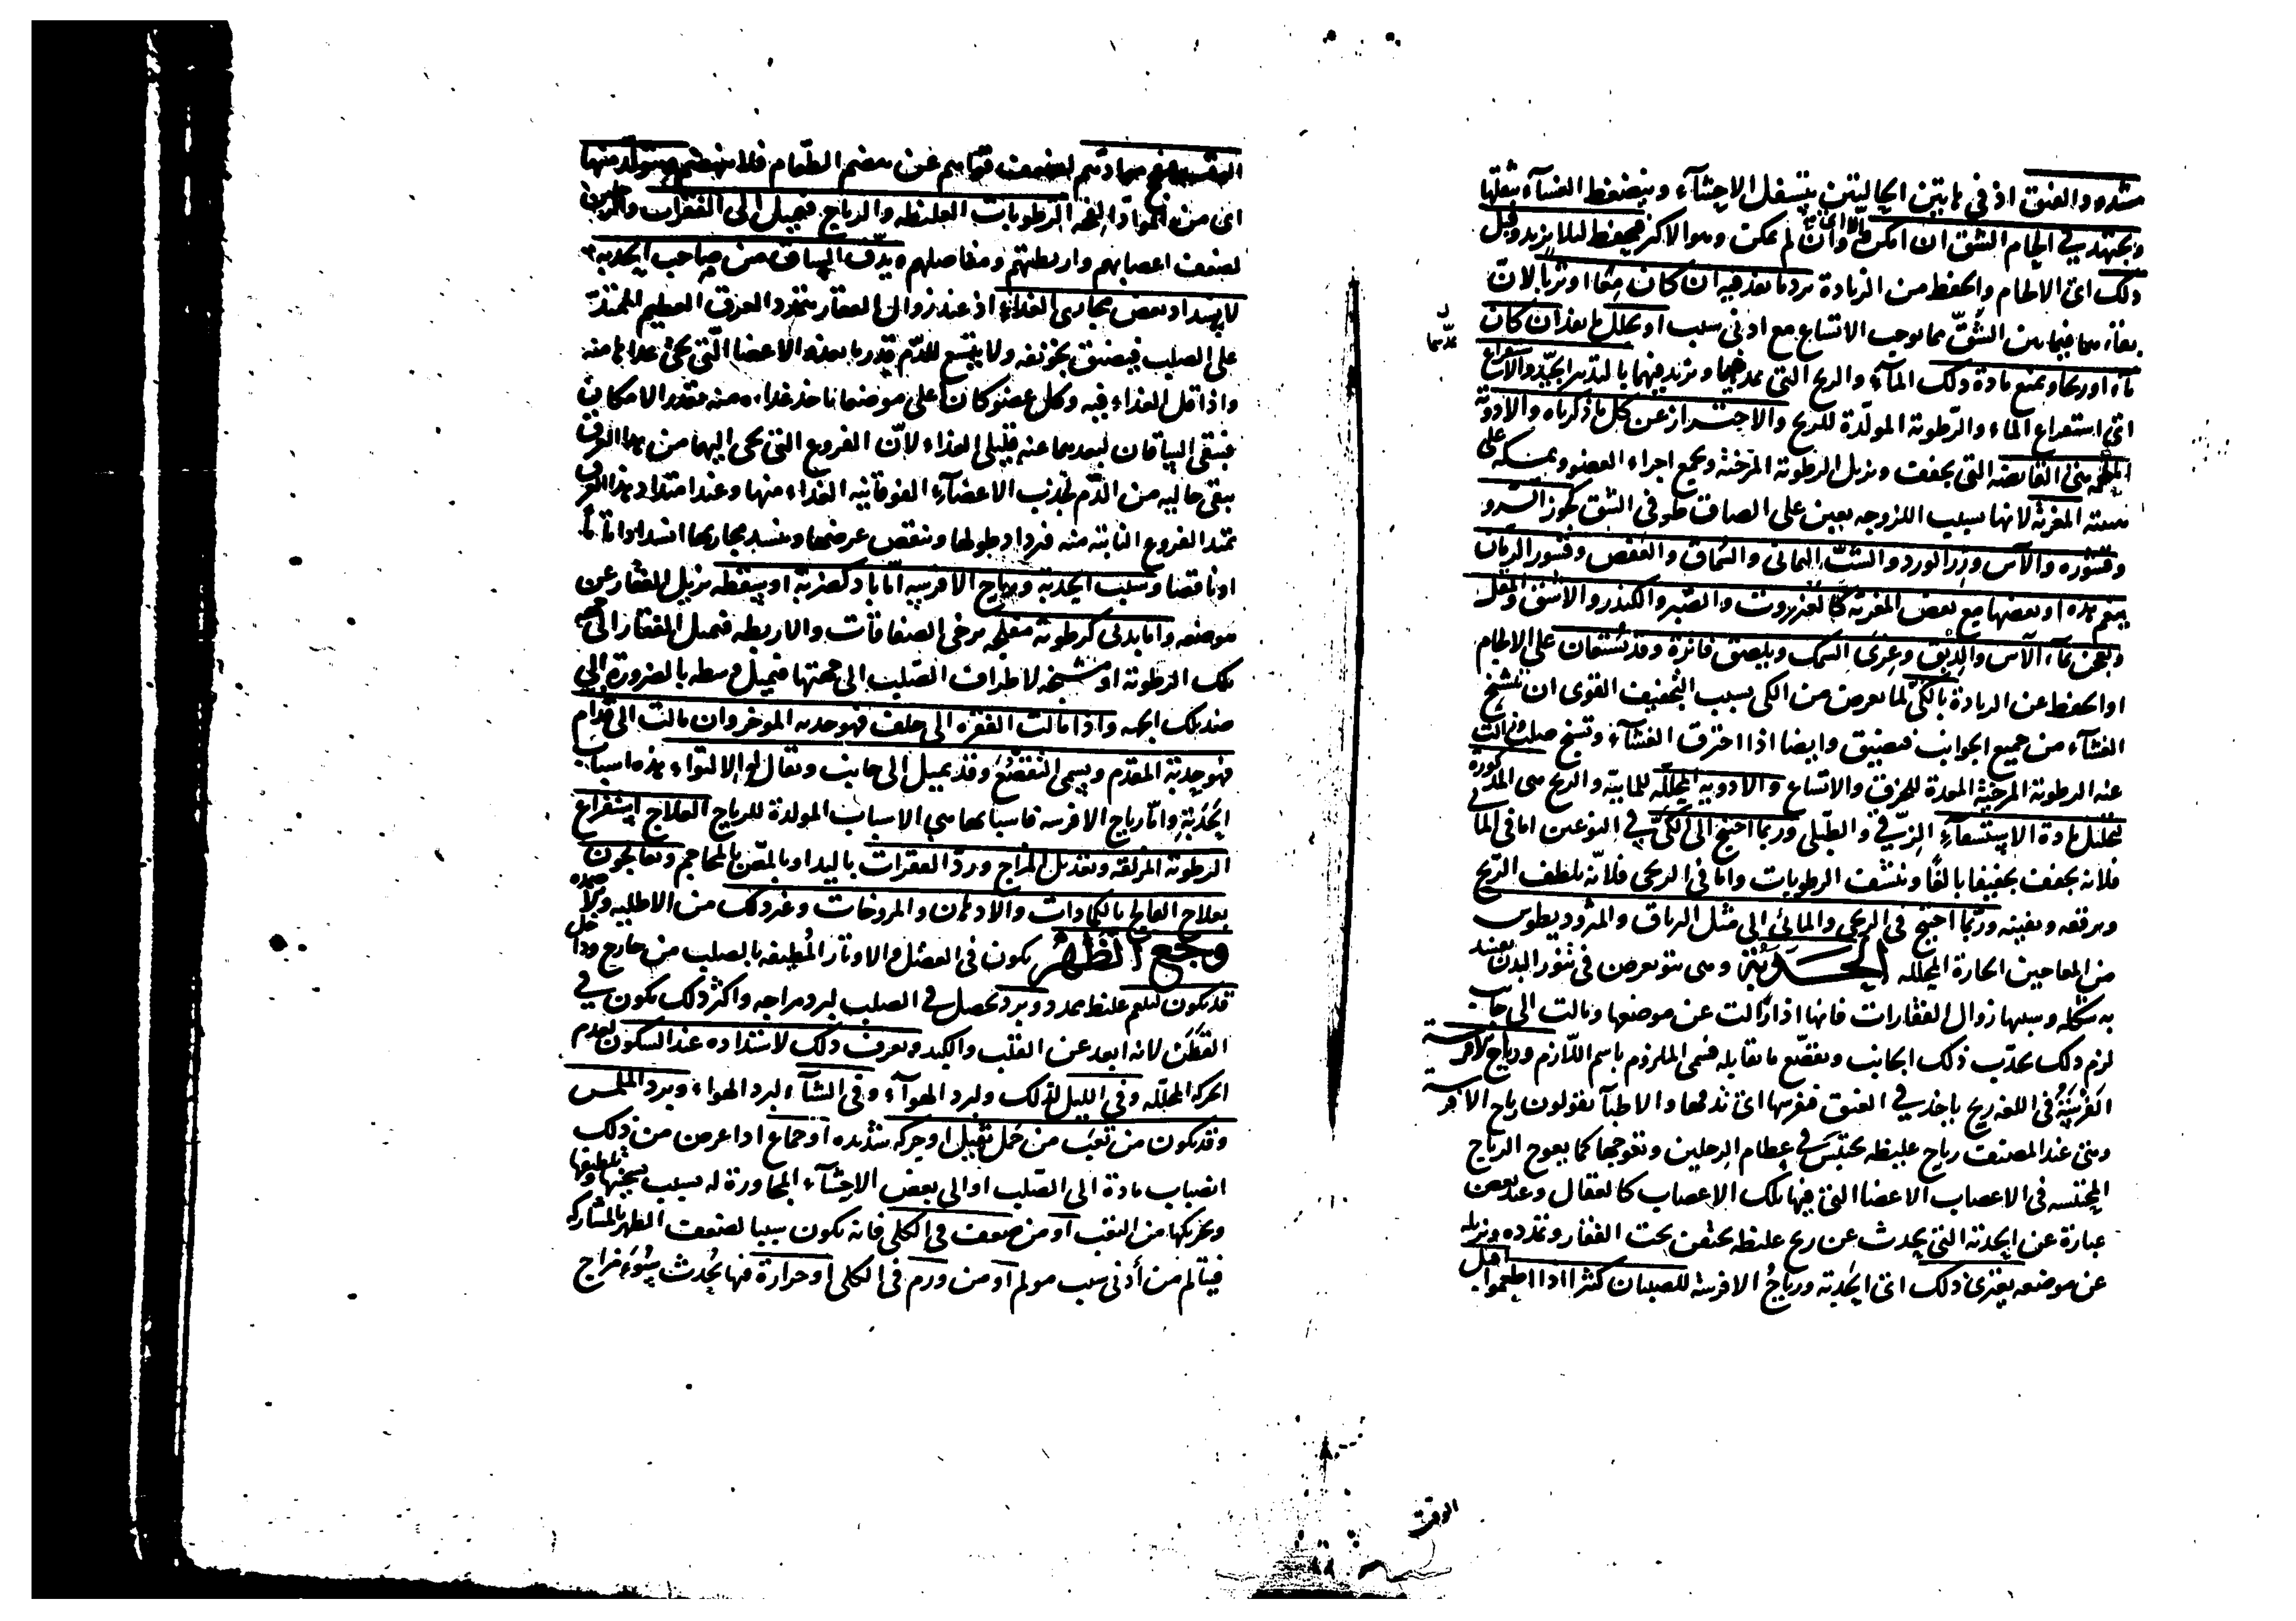 مشده والفتق اذ في هاتين الحالتين يتسفل الاحشآء وينضغط الغشآء بثقلها
ويجتهد في الحام الشق ان امكن وان لم يمكن وهو الاكثر فيحفظ ليلا يزيد وقبل
ذلك اى الالحام والحفظ من الزيادة يرد ما نفذ فيه ان كان معا او ثربا لان
بقاءهما فيما بين الشق مما يوجب الاتساع مع ادنى سبب او يحلل ما نفذ ان كان
ماء او ريحا ويمنع مادة ذلك المآء والريح التى تمدهما وتزيد فيهما بالتدبير الجيد والاستفراغ
اى استفراغ الماء والرطوبة المولدة للريح والاحتراز عن كل ما ذكرناه والادوية
القابضه التى تجفف وتزيل الرطوبة المرخية وتجمع اجزاء العضو وتمسكه على
المغرية لانها بسبب اللزوجه يعين على الصاق طرفى الشق كجوز السرو
وقشوره والآس وزر الورد والشب اليمانى والسماق والعفص وقشور الرمان
هذه او بعضها مع بعض المغرية كالعنزروت والصبر والكندر والاشق والمقل
ويعجن بمآء الآس والدبق وغرى السمك ويلصق فاترة وقد يستعان على الالحام
او الحفظ عن الزيادة بالكى لما يعرض من الكى بسبب التجفيف القوى ان يتشنج
الغشآء من جميع الجوانب فيضيق وايضا اذا احترق الغشآء وتشنج صلب وزالت
عنه الرطوبة المرخية المعدة للخرق والاتساع والادويه المحلله للمايية والريح هى المذكورة
لتحليل مادة الاستسقآء الزقى والطبلى وربما احتيج الى الكى فى النوعين اما فى المائى
فلانه يجفف تجفيفا بالغا وينشف الرطوبات واما فى الريحى فلانه يلطف الريح
ويرققه ويفنيه وربما احتيج فى الريحى والمائى الى مثل الترياق والمثروديطوس
من المعاجين الحارة المحلله الحدبة وهى نتو يعرض فى البدن يفسد
به شكله وسببها زوال الفقارات فانها اذا زالت عن موضعها ومالت الى جانب
لزم ذلك تحدب ذلك الجانب وتقصع ما تقابله فسمى الملزوم باسم اللازم ورياح الافرسة
الفرسة فى اللغه ريح ياخذ فى العنق فيفرسها اى تدقها والاطبآ يقولون رياح الافرسة
وهى عند المصنف رياح غليظه تحتبس فى عظام الرجلين وتعوجها كما يعوج الرياح
المحتبسه فى الاعصاب الاعضا التى فيها تلك الاعصاب كالعقال وعند بعض
عبارة عن الحدبة التى يحدث عن ريح غليظه يحتقن تحت الفقار وتمدده وتزيله
عن موضعه يعترى ذلك اى الحدبة ورياح الافرسة للصبيان كثيرا اذا اطعموا قبل
الوقت
لضعف قوتهم عن هضم الطعام فلا ينهضم ويتولد منها
اى من المواد الفجه الرطوبات الغليظه والرياح فيميل الى الفقرات والرجلين
لضعف اعصابهم واربطتهم ومفاصلهم ويدق الساق من صاحب الحدبه
لانسداد بعض مجارى الغذاء اذ عند زوال الفقار يتمدد العرق العظيم الممتد
على الصلب فيضيق تجويفه ولا يتسع للدم قدر ما يغذو الاعضا التى يجئ غذاءها منه
واذا قل الغذاء فيه وكل عضو كان اعلى موضعا ياخذ غذاءه منه بقدر الامكان
فيبقى الساقان لبعدهما عنه قليلى الغذاء لان الفروع التى تجى اليهما من هذا العرق
يبقى خاليه من الدم لجذب الاعضآء الفوقانيه الغذاء منها وعند امتداد هذا العرق
تمتد الفروع النابتة منه فيزداد طولها وينقص عرضها وينسد مجاريها انسدادا تاما
او ناقصا وسبب الحدبة ورياح الافرسه اما باد كضربة او سقطه يزيل الفقار عن
موضعه واما بدنى كرطوبة مفلجه يرخى الصفاقات والاربطه فيميل الفقار الى
تلك الرطوبة او مشنجه لاطراف الصلب الى جهتها فيميل وسطه بالضرورة الى
ضد تلك الجهه واذا مالت الفقره الى خلف فهو حدبه المؤخر وان مالت الى قدام
فهو حدبة المقدم ويسمى التقصع وقد يميل الى جانب وتقال له الالتواء هذه اسباب
الحدبة واما رياح الافرسه فاسبابها هى الاسباب المولدة للرياح العلاج استفراغ
الرطوبة المزلقه وتعديل المزاج ورد الفقرات باليد او بالمص بالمحاجم ويعالجون
بعلاج الفالج بالكمادات والادهان والمروخات وغير ذلك من الاطليه
وجع الظهر يكون فى العضل والاوتار المطيفه بالصلب من خارج وداخل
قد يكون لبلغم غليظ يمدد وبرد يحصل فى الصلب لبرد مزاجه واكثر ذلك يكون فى
القطن لانه ابعد عن القلب والكبد ويعرف ذلك لاشتداده عند السكون لعدم
الحركه المحلله وفى الليل لذلك ولبرد الهوآء وفى الشتآء لبرد الهواء وبرد الملمس
وقد يكون من تعب من حمل ثقيل او حركه شديده او جماع اذا عرض من ذلك
انصباب مادة الى الصلب او الى بعض الاحشآء المجاورة له بسبب تسخينها وتلطيفها
وتحريكها من التعب او من ضعف فى الكلى فانه يكون سببا لضعف الظهر بالمشاركه
فيتالم من أدنى سبب مولم او من ورم فى الكلى او حرارة فيها يحدث سوء مزاج